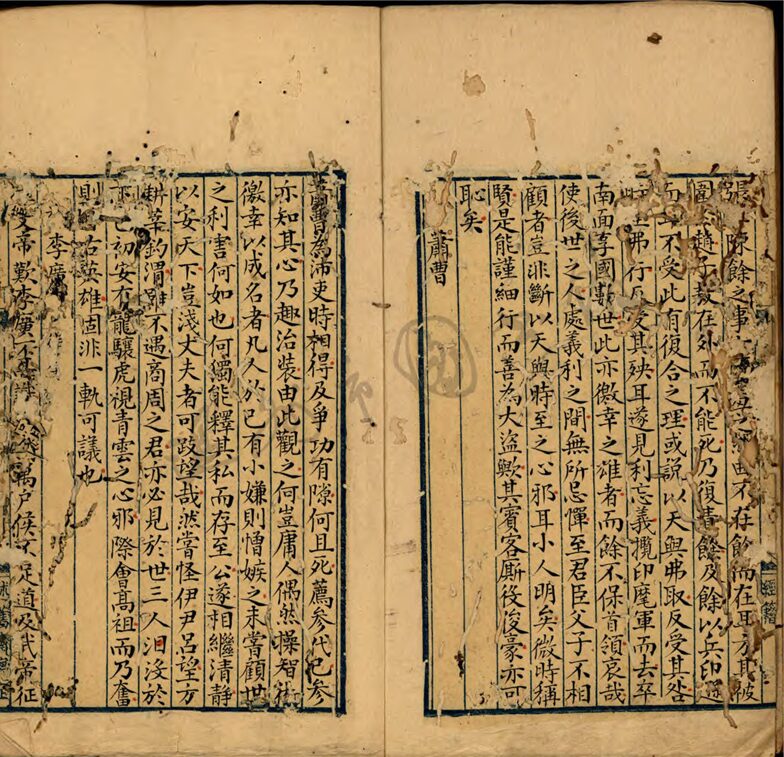 張陳餘之事不存餘而在耳方其被
圍趙子敖在外而不能死乃復責餘及餘以兵印
而不受此有復合之理或說以天與弗取反受其咎
弗行反受其殃耳遂見利忘義攬印麾軍而去卒
南面享國數世此亦徼幸之雄者而餘不保首領哀哉
使後世之人處義利之間無所忌憚至君臣父子不相
顧者豈非斷以天與時至之心邪耳小人明矣微時稱
賢是能謹細行而善為大盜歟其賓客厮役俊豪亦可
恥矣
蕭曹
蕭曹為沛吏時相得及爭功有隙何且死薦參代已參
亦知其心乃趣治裝由此觀之何豈庸人偶然操智術
徼幸以成名者凡人於己有小嫌則憎嫉之未嘗顧世
之利害何如也何獨能釋其私而存至公遂相繼清靜
以安天下豈淺丈夫者可跂望哉然嘗怪伊尹呂望方
耕莘釣渭雖不遇商周之君亦必見於世三人汩沒於
下已初安有龍驤虎視青雲之心邪際會高祖而乃奮
則古英雄固非一軌可議也
李廣
文帝歎李廣不萬戶侯不足道及武帝征